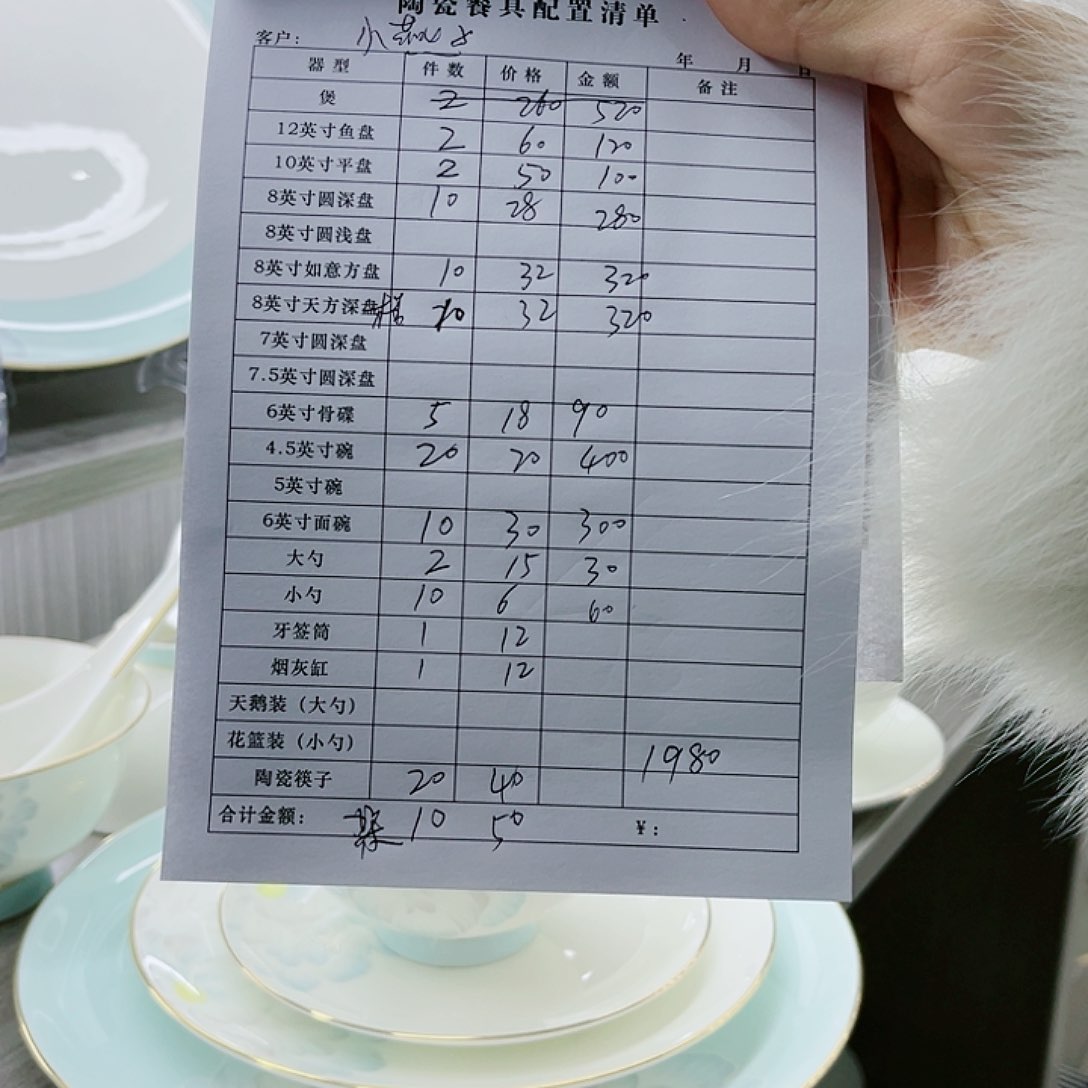 陶瓷餐具配置清单
客户: 小 年 月 日
器型 件数 价格 金额 备注
煲 2 260 520
12英寸鱼盘 2 60 120
10英寸平盘 2 50 100
8英寸圆深盘 10 28 280
8英寸圆浅盘
8英寸如意方盘 10 32 320
8英寸天方深盘 10 32 320
7英寸圆深盘
7.5英寸圆深盘
6英寸骨碟 5 18 90
4.5英寸碗 20 20 400
5英寸碗
6英寸面碗 10 30 300
大勺 2 15 30
小勺 10 6 60
牙签筒 1 12
烟灰缸 1 12
天鹅装（大勺）
花篮装（小勺） 1980
陶瓷筷子 20 40
合计金额: 10 50 ¥: